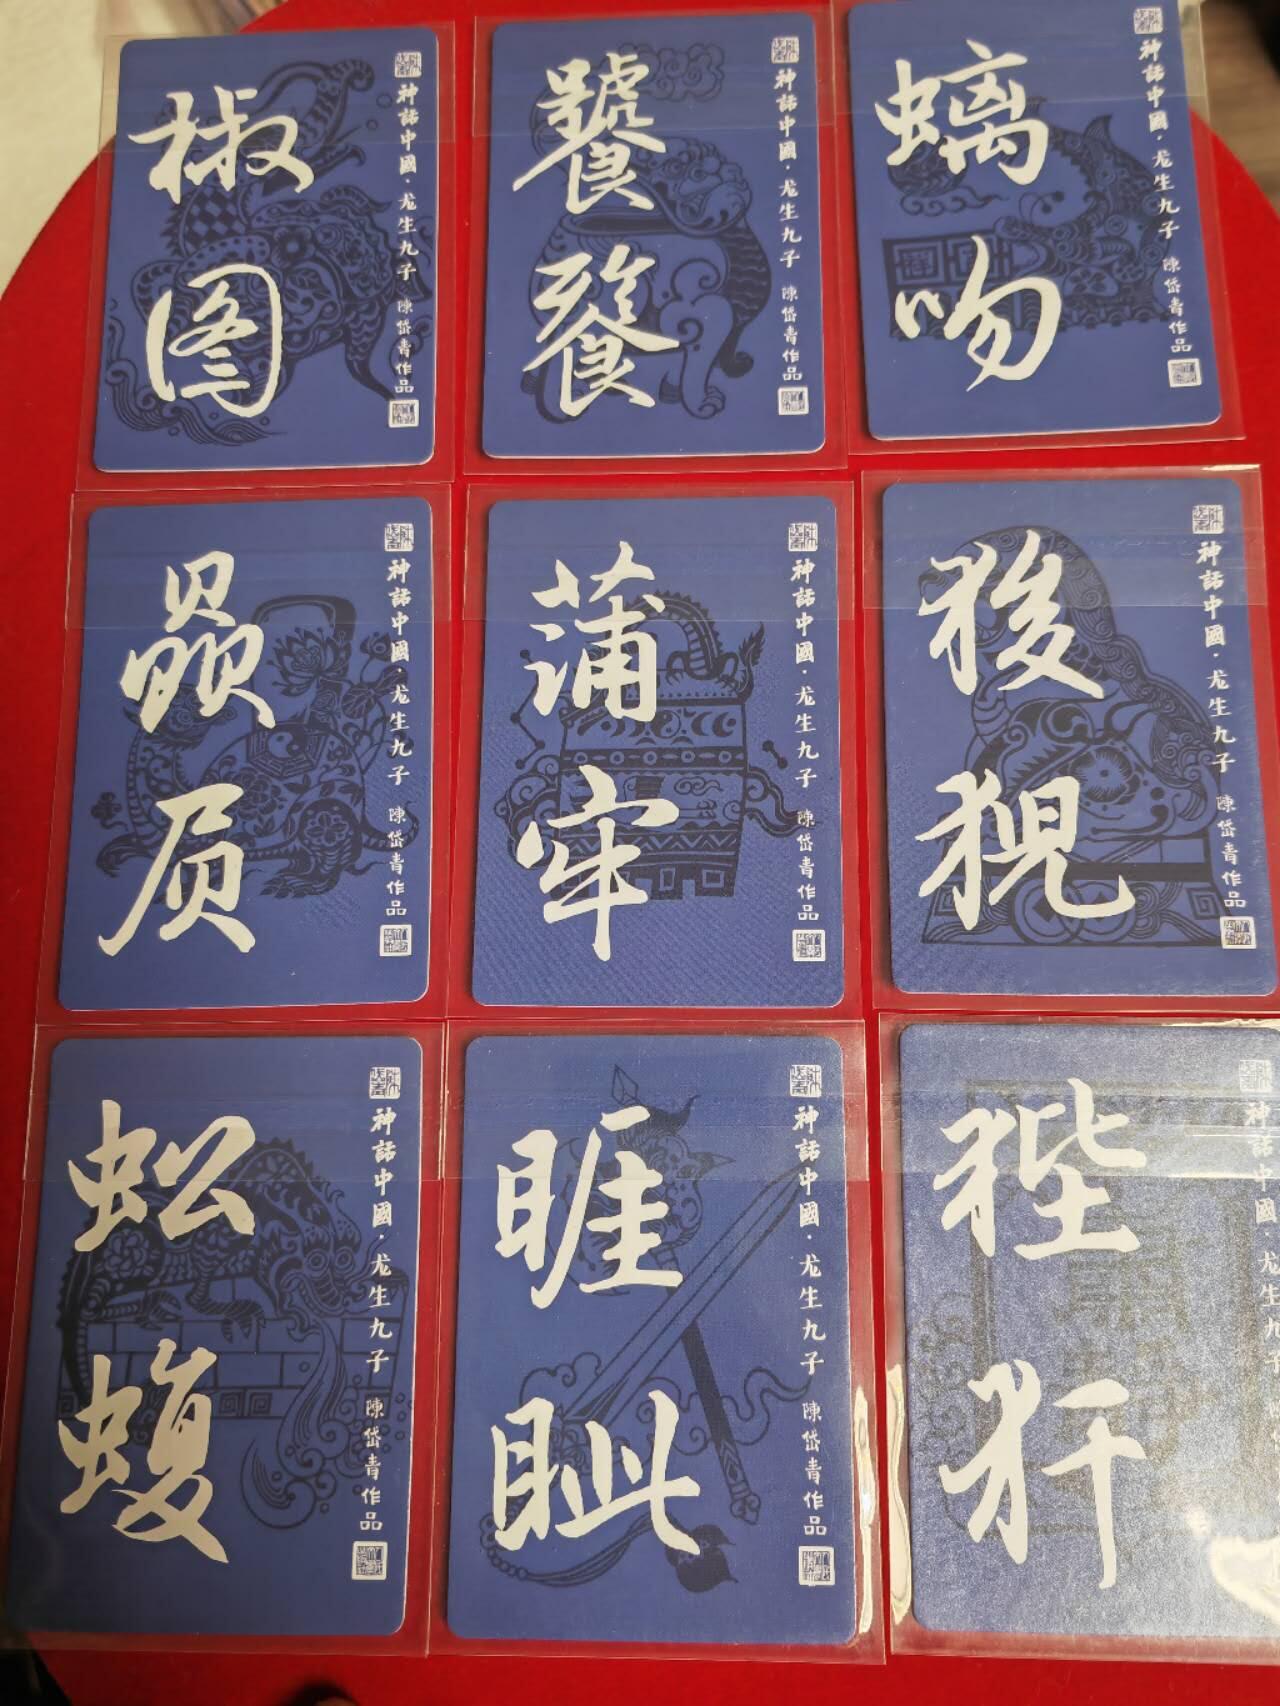 椒图
神話中國·龙生九子 陳岱青作品
饕餮
神話中國·龙生九子 陳岱青作品
螭吻
神話中國·龙生九子 陳岱青作品
赑屃
神話中國·龙生九子 陳岱青作品
蒲牢
神話中國·龙生九子 陳岱青作品
狻猊
神話中國·龙生九子 陳岱青作品
蚣蝮
神話中國·龙生九子 陳岱青作品
睚眦
神話中國·龙生九子 陳岱青作品
狴犴
神話中國·龙生九子